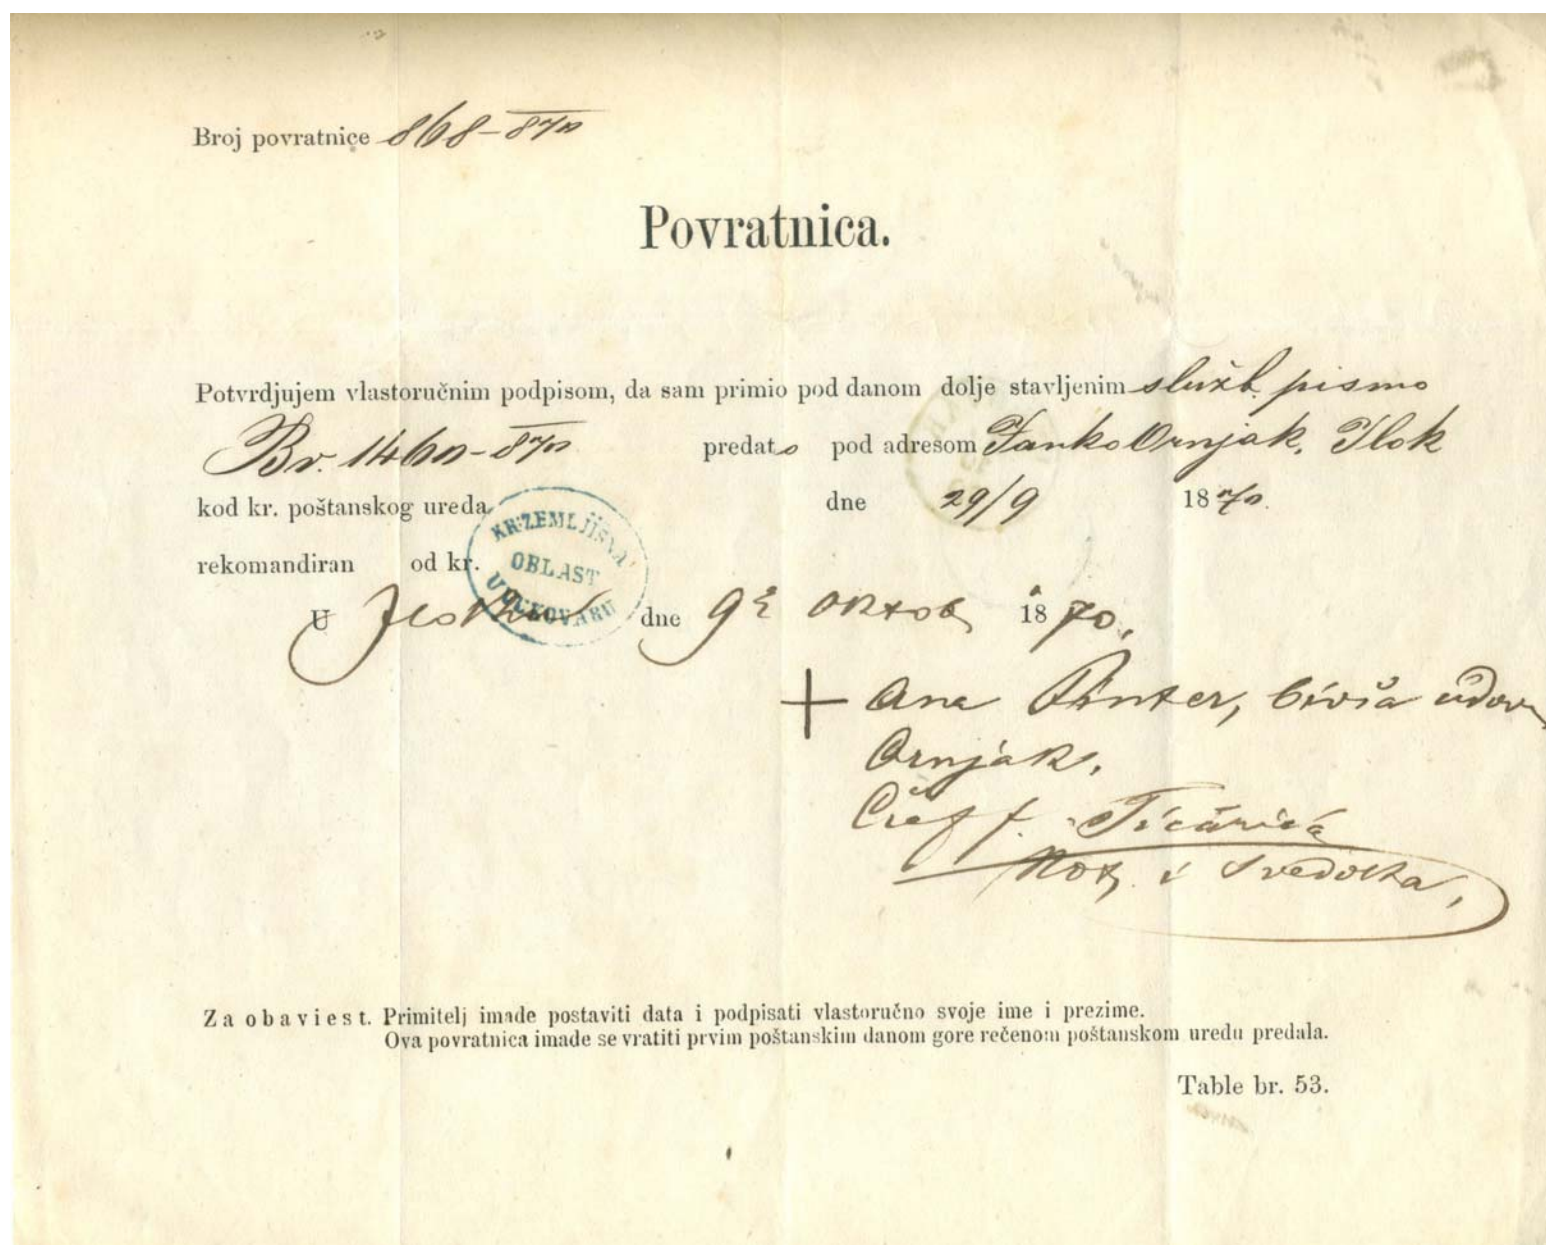 Broj povratnice 868-870
Povratnica.
Potvrdjujem vlastoručnim podpisom, da sam primio pod danom dolje stavljenim služb. pismo
Br. 1460-870 predato pod adresom Janko Ornjak, Ilok
kod kr. poštanskog ureda dne 29/9 1870.
rekomandiran od kr.
KR. ZEMLJIŠNA
OBLAST
U VUKOVARU
U Iloku dne 9 Oktob 1870.
+ Ana Pinter, bivša udov
Ornjak.
i Svedoka,
Za obaviest. Primitelj imade postaviti data i podpisati vlastoručno svoje ime i prezime.
Ova povratnica imade se vratiti prvim poštanskim danom gore rečenom poštanskom uredu predala.
Table br. 53.